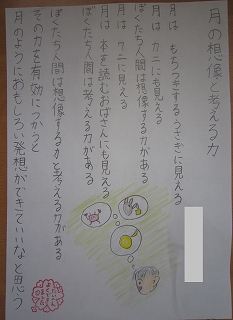 月の想像と考える力
月は もちつきするうさぎに見える
月は カニにも見える
ぼくたち人間は想像する力がある
月は ワニに見える
月は 本を読むおばさんにも見える
ぼくたち人間は考える力がある
ぼくたち人間は想像する力と考える力がある
その力を有効につかうと
月のようにおもしろい発想ができていいなと思う